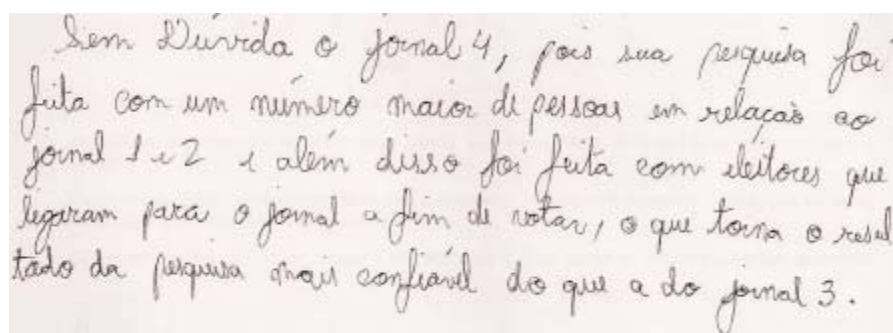 Sem Dúvida o jornal 4, pois sua pesquisa foi
feita com um número maior de pessoas em relação ao
jornal 1 e 2 e além disso foi feita com eleitores que
ligaram para o jornal a fim de votar, o que torna o resul
tado da pesquisa mais confiável do que a do jornal 3.